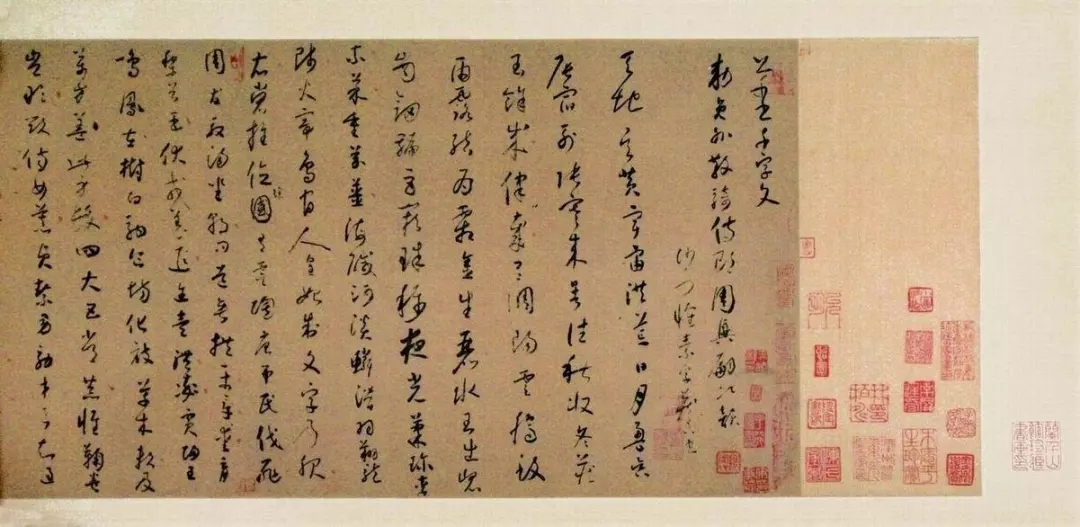 千字文
敕員外散騎侍郎周興嗣次韻
沙門懷素字藏真書
天地玄黃宇宙洪荒日月盈昃
辰宿列張寒來暑往秋收冬藏
閏餘成歲律呂調陽雲騰致
雨露結為霜金生麗水玉出崐
崗劍號巨闕珠稱夜光菓珍李
柰菜重芥薑海鹹河淡鱗潛羽翔龍
師火帝鳥官人皇始制文字乃服
衣裳推位讓國有虞陶唐弔民伐罪
周發殷湯坐朝問道垂拱平章愛育
黎首臣伏戎羌遐邇壹體率賓歸王
鳴鳳在樹白駒食場化被草木賴及
萬方蓋此身髮四大五常恭惟鞠養
豈敢毀傷女慕貞潔男效才良知過